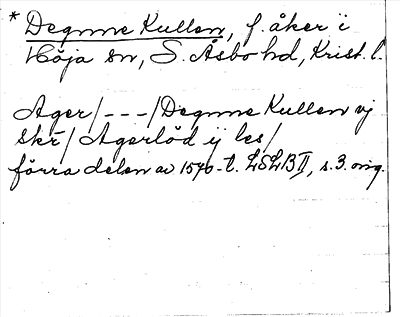 * Degnne Kullen, f. åker i
Höja sn, S. Åsbo hd, Krist. l.
Ager/---/Degnne Kullen vj
Skr/ Agerlöd ij les/
förra delen av 1570-t. LSLB II, s. 3. orig.